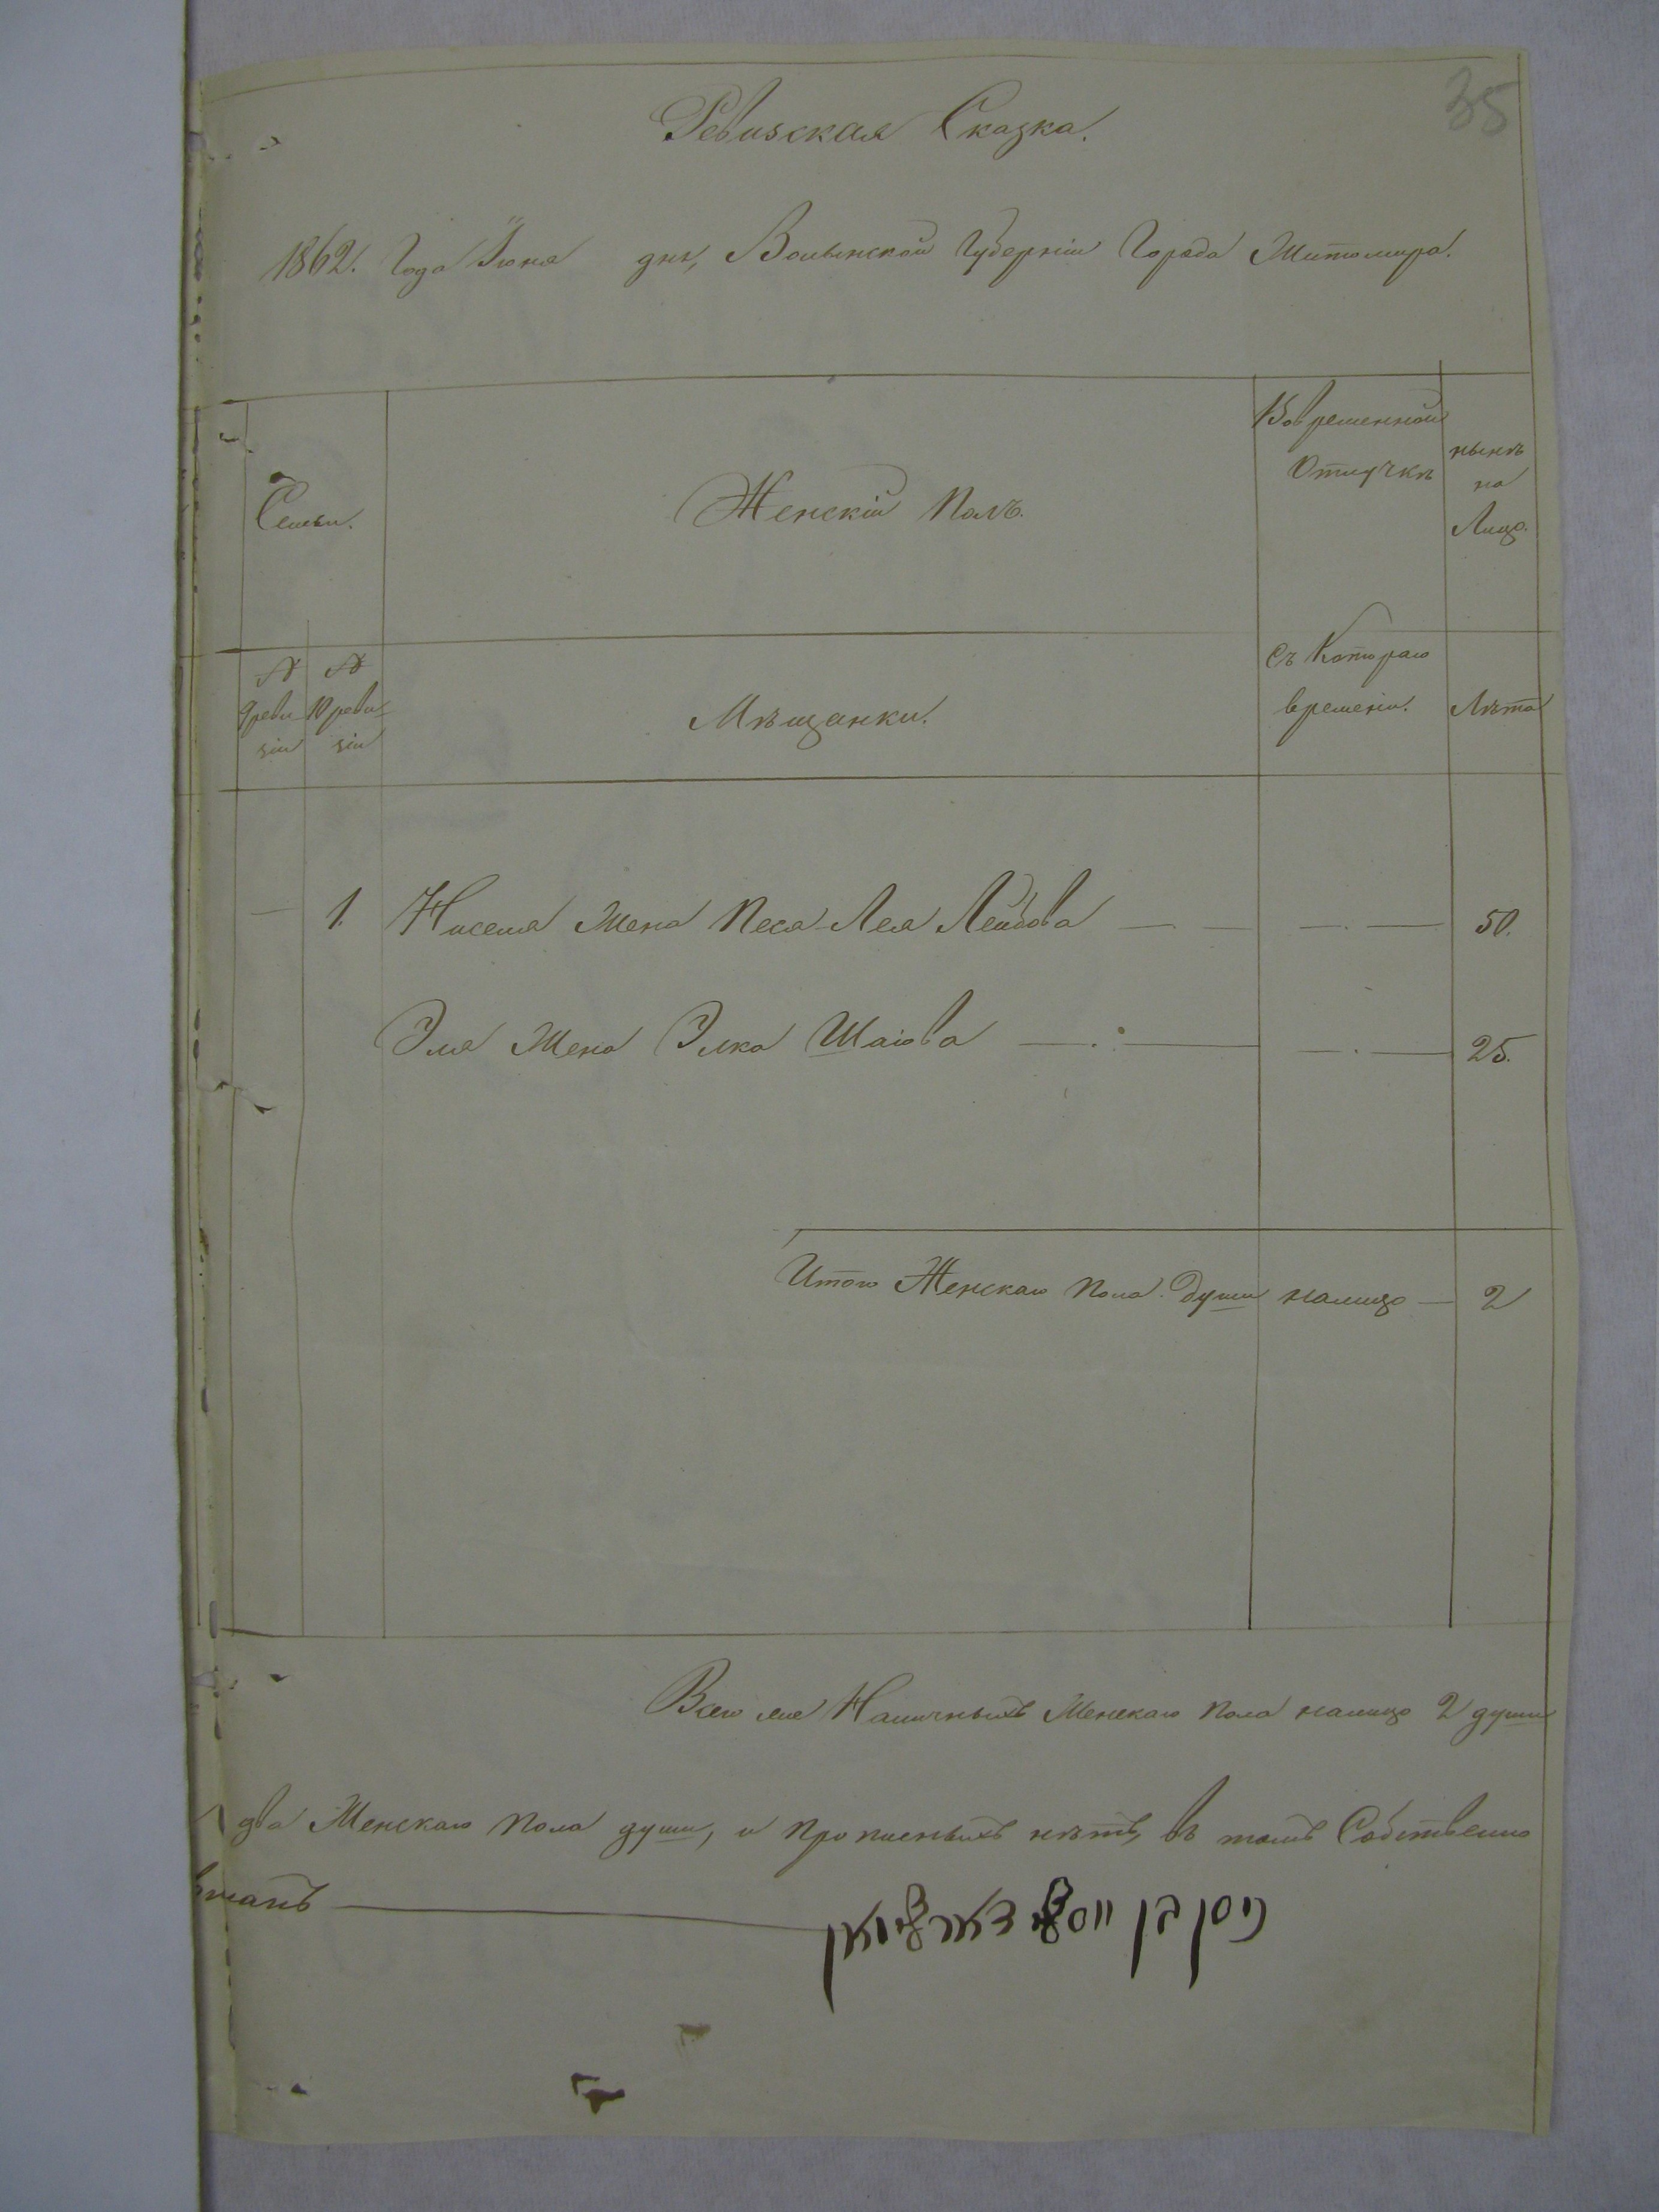 35
Ревизская Сказка.
1862. Года Іюня дня, Волынской Губерніи Города Житомира.
Семьи.
Женскій Полъ.
Во временной
Отлучкѣ
нынѣ
на
Лицо.
№
9 реви-
зіи
№
10 реви-
зіи
Мѣщанки.
Съ Котораго
времени.
Лѣта
— 1. Нисена Жена Песя-Лея Лейбова — — — . — 50.
Эля Жена Элка Шаіова — . : — — . — 25.
Итого Женскаго Пола души налицо — 2
Всего же Наличныхъ Женскаго пола налицо 2 души
два Женскаго Пола души, и прописныхъ нѣтъ, въ томъ Собственно
ניסן בן יוסף